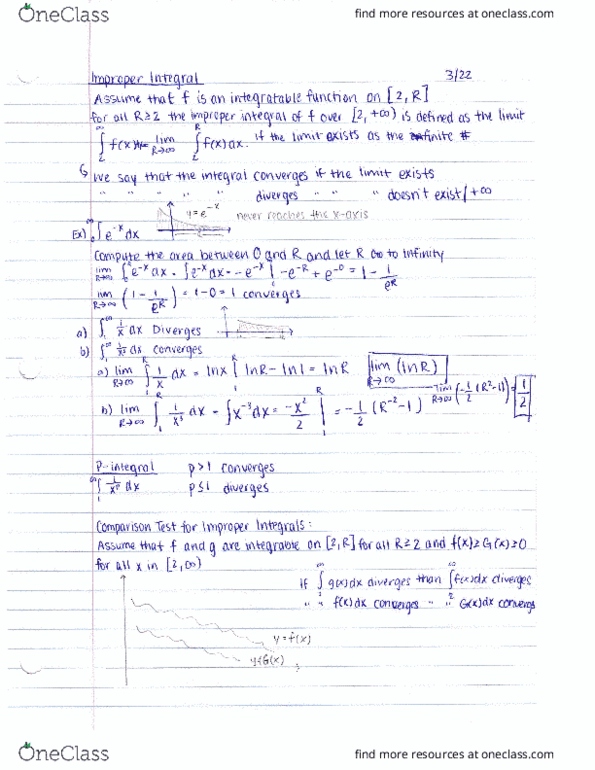 OneClass
find more resources at oneclass.com
Improper Integral 3/22
Assume that f is an integratable function on [2, R]
for all R≥2 the improper integral of f over [2, +∞) is defined as the limit
∫ f(x) = lim R→∞ ∫ f(x)dx. If the limit exists as the finite #
↳ we say that the integral converges if the limit exists
" " " " " diverges " " " doesn't exist/+∞
y=e^-x never reaches the x-axis
Ex) ∫₀^∞ e^-x dx
Compute the area between 0 and R and let R go to infinity
lim R→∞ ∫ e^-x dx = ∫ e^-x dx = -e^-x | -e^-R + e^-0 = 1 - 1/e^R
lim R→∞ (1 - 1/e^R) = 1-0 = 1 converges
a) ∫₁^∞ 1/x dx Diverges
b) ∫₁^∞ 1/x³ dx converges
a) lim R→∞ ∫₁^R 1/x dx = lnx |₁^R lnR - ln1 = lnR lim R→∞ (lnR)
b) lim R→∞ ∫₁^R 1/x³ dx = ∫x^-3 dx = -x²/2 |₁^R = -1/2 (R^-2 - 1) lim R→∞ (-1/2 (R²-1)) = 1/2
P-integral p>1 converges
∫₁^∞ 1/x^p dx p≤1 diverges
Comparison Test for Improper Integrals:
Assume that f and g are integrable on [2,R] for all R≥2 and f(x)≥G(x)≥0
for all x in [2,∞)
If ∫₂^∞ g(x)dx diverges than ∫₂^∞ f(x)dx diverges
" " f(x)dx converges " " G(x)dx converges
y=f(x)
y=G(x)
OneClass
find more resources at oneclass.com